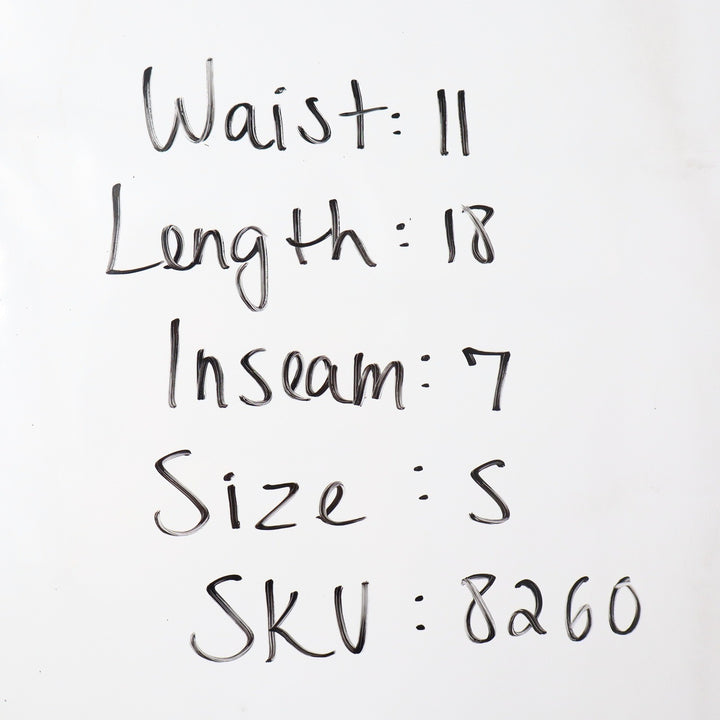 Waist: 11
Length: 18
Inseam: 7
Size: S
SKU: 8260